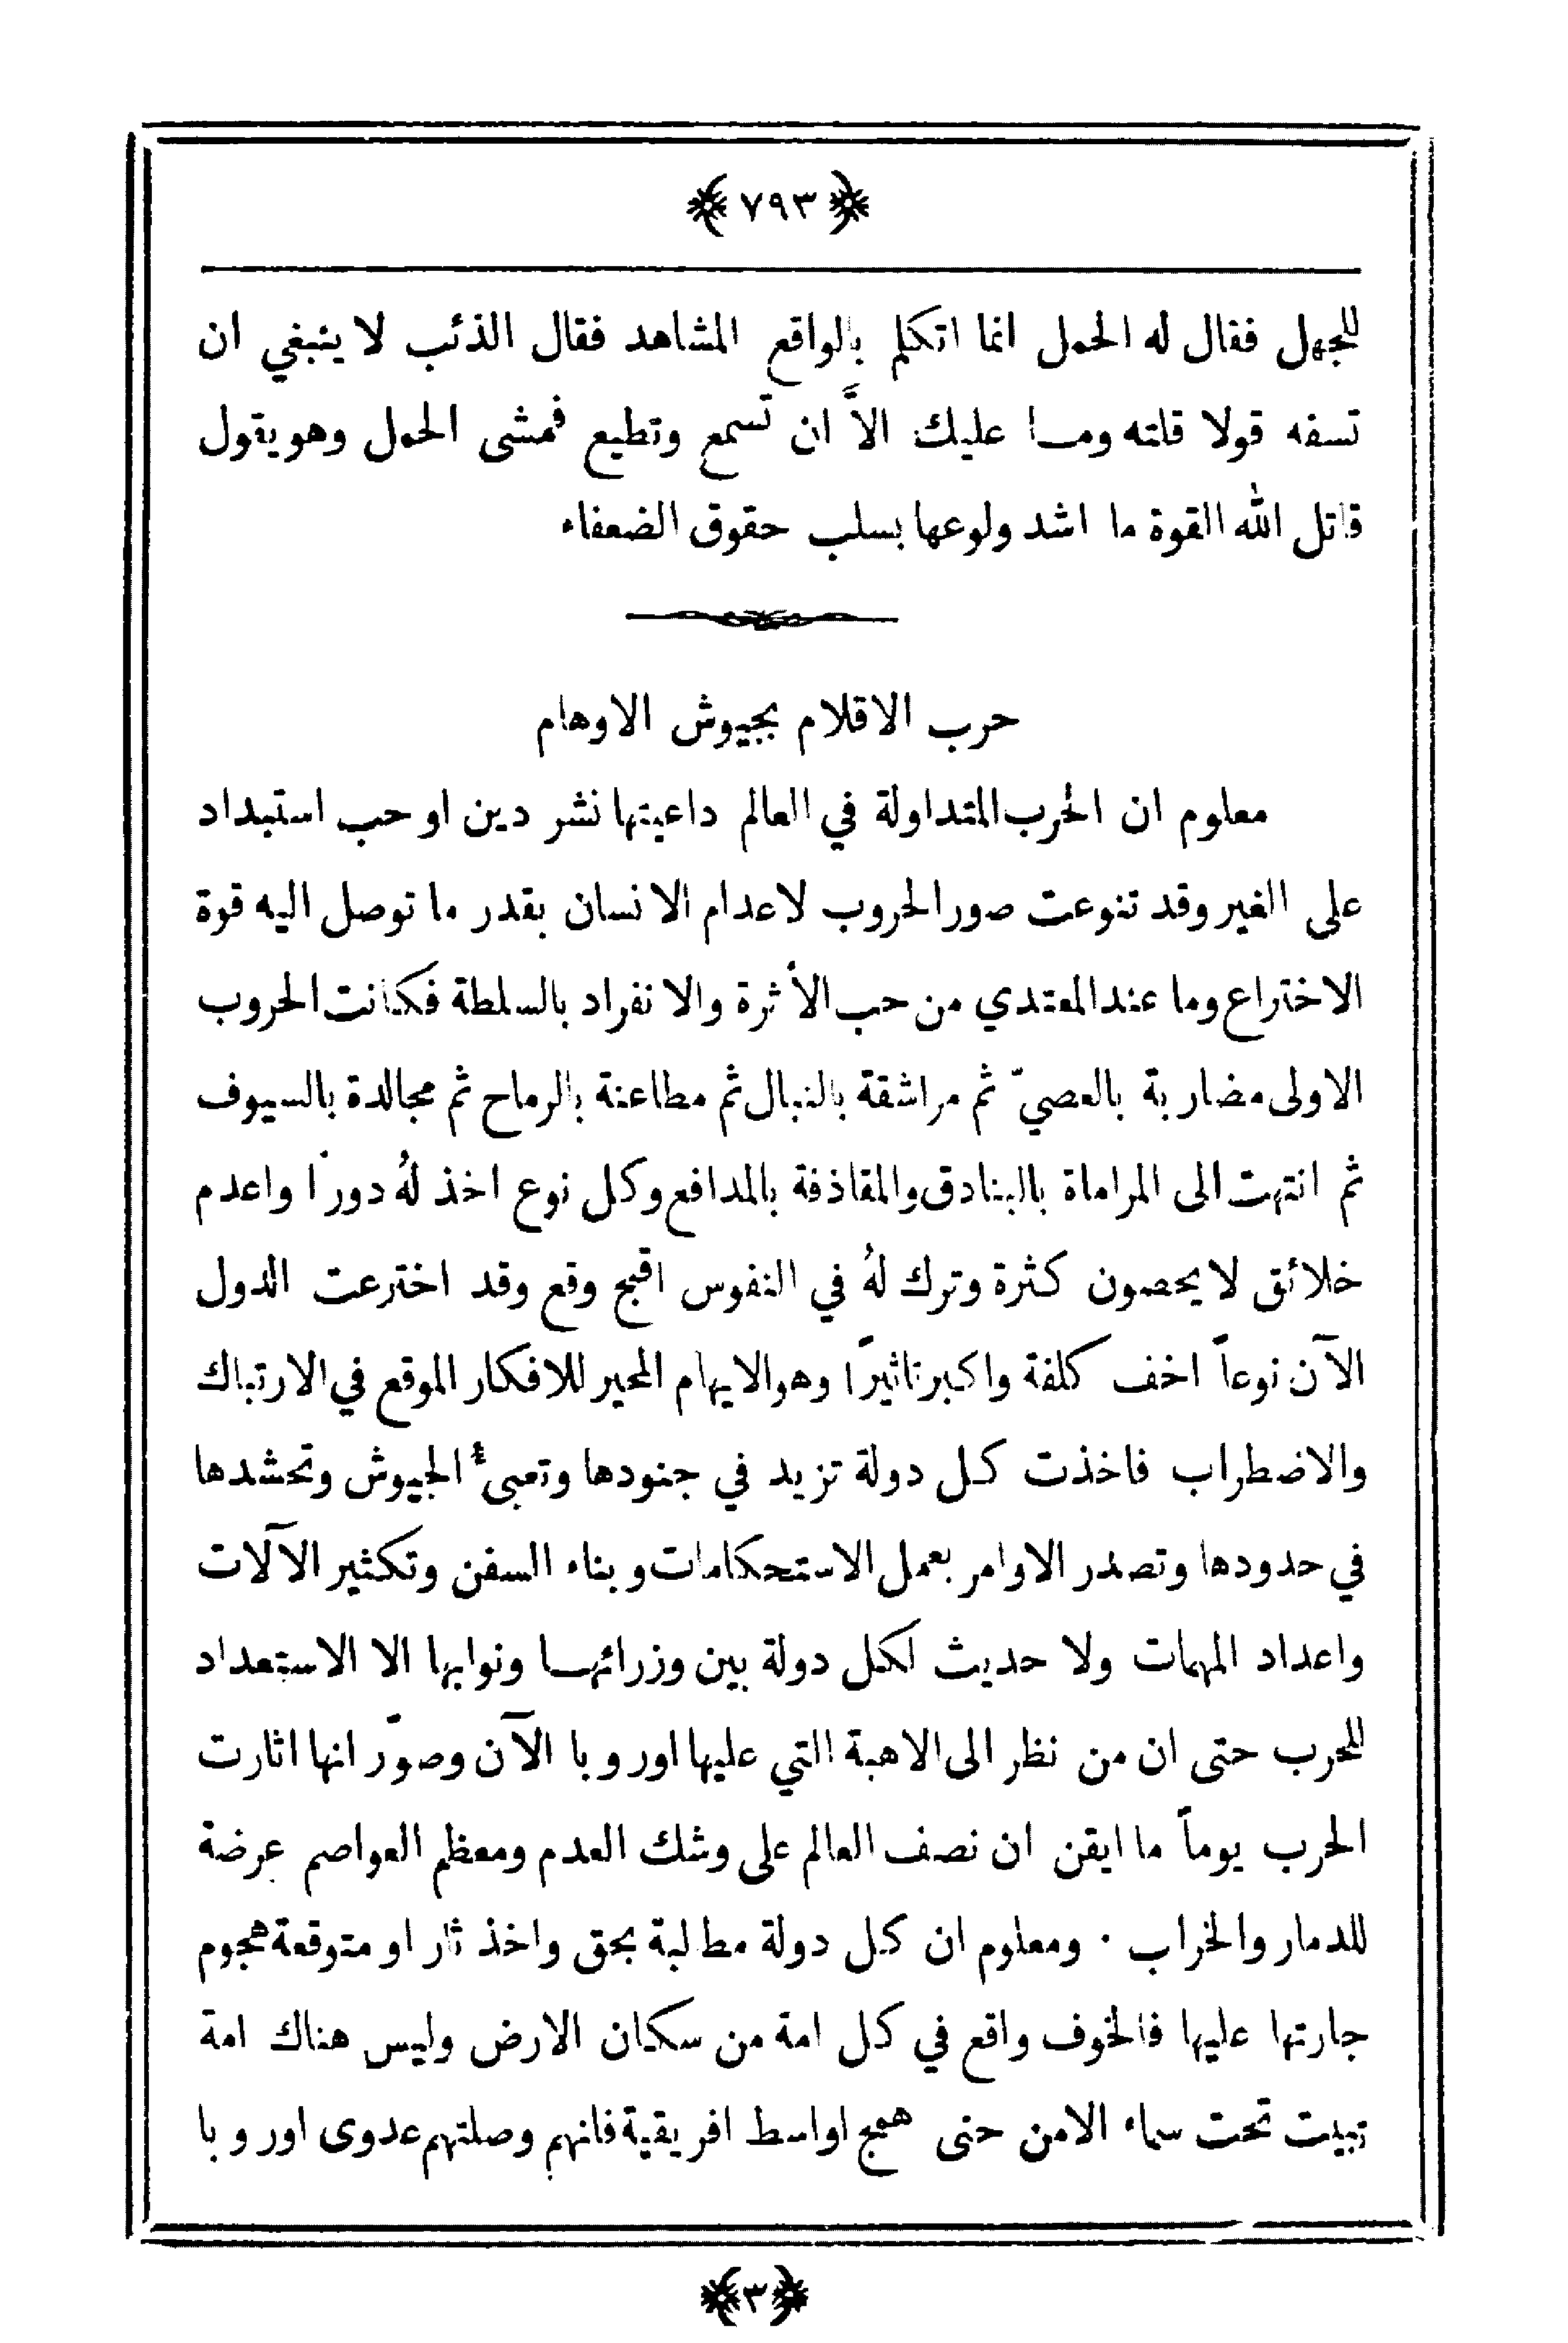 ﴿٧٩٣﴾
للجهل فقال له الحمل انما اتكلم بالواقع المشاهد فقال الذئب لا ينبغي ان
تسفه قولا قلته وما عليك الاَّ ان تسمع وتطيع فمشى الحمل وهو يقول
قاتل الله القوة ما اشد ولوعها بسلب حقوق الضعفاء
حرب الاقلام بجيوش الاوهام
معلوم ان الحرب المتداولة في العالم داعيتها نشر دين او حب استبداد
على الغير وقد تنوعت صور الحروب لاعدام الانسان بقدر ما توصل اليه قوة
الاختراع وما عند المعتدي من حب الأثرة والانفراد بالسلطة فكانت الحروب
الاولى مضاربة بالعصيّ ثم مراشقة بالنبال ثم مطاعنة بالرماح ثم مجالدة بالسيوف
ثم انتهت الى المراماة بالبنادق والمقاذفة بالمدافع وكل نوع اخذ لهُ دورًا واعدم
خلائق لا يحصون كثرة وترك لهُ في النفوس اقبح وقع وقد اخترعت الدول
الآن نوعاً اخف كلفة واكبر تاثيرًا وهو الايهام المحير للافكار الموقع في الارتباك
والاضطراب فاخذت كل دولة تزيد في جنودها وتعبئ الجيوش وتحشدها
في حدودها وتصدر الاوامر بعمل الاستحكامات وبناء السفن وتكثير الآلات
واعداد المهمات ولا حديث لكل دولة بين وزرائها ونوابها الا الاستعداد
للحرب حتى ان من نظر الى الاهبة التي عليها اوروبا الآن وصوَّر انها اثارت
الحرب يوماً ما ايقن ان نصف العالم على وشك العدم ومعظم العواصم عرضة
للدمار والخراب · ومعلوم ان كل دولة مطالبة بحق واخذ ثار او متوقعة هجوم
جارتها عليها فالخوف واقع في كل امة من سكان الارض وليس هناك امة
تبيت تحت سماء الامن حتى همج اواسط افريقية فانهم وصلتهم عدوى اوروبا
﴿٣﴾